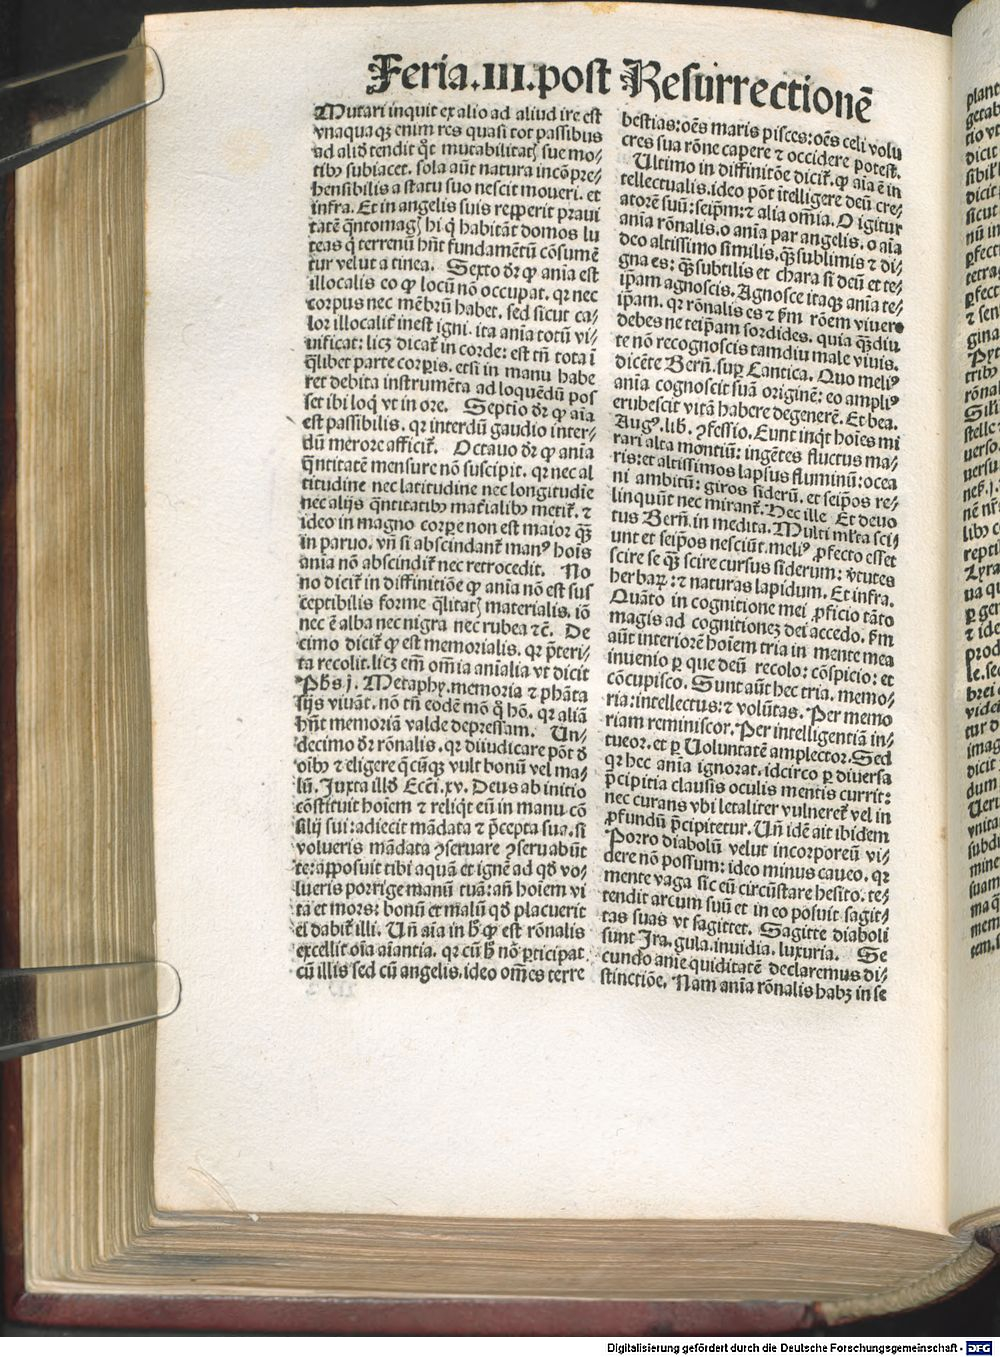 Feria.III.post Resurrectionē
Mutari inquit ex alio ad aliud ire est
vnaquaqȝ enim res quasi tot passibus
ad aliđ tendit q̄t mutabilitatꝭ sue mo⸗
tibꝰ subiacet. sola aūt natura incōpre⸗
hensibilis a statu suo nescit moueri. et
infra. Et in angelis suis repperit praui
tatē q̄ntomagꝭ hi q̇ habitāt domos lu
teas q̇ terrenū hn̄t fundamētū cōsumē
tur velut a tinea. Sexto dr̄ ꝙ aīa est
illocalis eo ꝙ locū nō occupat. qꝛ nec
corpus nec mēbrū habet. sed sicut ca⸗
lor illocalit̄ inest igni. ita anīa totū vi⸗
uificat: licȝ dicat̄ in corde: est tn̄ tota ī
q̄libet parte corꝑis. etsi in manu habe
ret debita instrumēta ad loquēdū pos
set ibi loq̇ vt in ore. Septīo dr̄ ꝙ aīa
est passibilis. qꝛ interdū gaudio inter⸗
dū merore afficit̄. Octauo dr̄ ꝙ anīa
q̄ntitatē mensure nō suscipit. qꝛ nec al
titudine nec latitudine nec longitudīe
nec alijs q̄ntitatibꝰ mat̄ialibꝰ metit̄. ⁊
ideo in magno corꝑe non est maior q̄ȝ
in paruo. vn̄ si abscindant̄ manꝰ hoīs
anīa nō abscindit̄ nec retrocedit. No
no dicit̄ in diffinitiōe ꝙ anīa nō est sus
ceptibilis forme q̄litatꝭ materialis. iō
nec ē alba nec nigra nec rubea ⁊c̄. De
cimo dicit̄ ꝙ est memorialis. qꝛ p̄teri⸗
ta recolit. licȝ em̄ omīa anīalia vt dicit
Ph̄s j. Metaphy. memoria ⁊ phāta
sijs viuāt. nō tn̄ eodē mō q̇ hō. qꝛ aliā
hn̄t memoriā valde depressam. Un⸗
decimo dr̄ rōnalis. qꝛ diiudicare pōt đ
oībꝰ ⁊ eligere q̄cūqȝ vult bonū vel ma⸗
lū. Juxta illđ Ecc̄i. xv. Deus ab initio
cōstituit hoīem ⁊ reliq̇t eū in manu cō
silij sui: adiecit mādata ⁊ p̄cepta sua. si
volueris mādata ꝯseruare ꝯseruabūt
te: apposuit tibi aquā et ignē ad qđ vo⸗
lueris porrige manū tuā: an̄ hoīem vi
ta et mors: bonū et malū qđ placuerit
ei dabit̄ illi. Un̄ aīa in h̄ ꝙ est rōnalis
excellit oīa aīantia. qꝛ cū h̄ nō ꝑticipat
cū illis sed cū angelis. ideo om̄es terre
bestias: oēs maris pisces: oēs celi volu
cres sua rōne capere ⁊ occidere potest.
Ultimo in diffinitōe dicit̄. ꝙ aīa ē in
tellectualis. ideo pōt ītelligere deū cre⸗
atorē suū: seip̄m: ⁊ alia om̄ia. O igitur
anīa rōnalis. o anīa par angelis. o aīa
deo altissimo similis. q̄ȝ sublimis ⁊ di⸗
gna es: q̄ȝ subtilis et chara si deū et te⸗
ip̄am agnoscis. Agnosce itaqȝ anīa te⸗
ip̄am. qꝛ rōnalis es ⁊ ẜm rōem viuere
debes ne teip̄am sordides. quia q̄ȝdiu
te nō recognoscis tamdiu male viuis.
dicēte Bern̄. suꝑ Cantica. Quo meliꝰ
anīa cognoscit suā originē: eo ampliꝰ
erubescit vitā habere degenerē. Et bea.
Augꝰ. lib. ꝯfessio. Eunt inq̇t hoīes mi
rari alta montiū: ingētes fluctus ma⸗
ris: et altissimos lapsus fluminū: ocea
ni ambitū: giros siderū. et seip̄os re⸗
linquūt nec mirant̄. Hec ille Et deuo
tus Bern̄. in medita. Multi ml̄ta sci⸗
unt et seip̄os nesciūt. meliꝰ ꝓfecto esset
scire se q̄ȝ scire cursus siderum: v̄tutes
herbaꝝ: ⁊ naturas lapidum. Et infra.
Quāto in cognitione mei ꝓficio tāto
magis ad cognitioneȝ dei accedo. ẜm
aūt interiorē hoīem tria in mente mea
inuenio ꝑ que deū recolo: cōspicio: et
cōcupisco. Sunt aūt hec tria. memo⸗
ria: intellectus: ⁊ volūtas. Per memo
riam reminiscor. Per intelligentiā in⸗
tueor. et ꝑ Uoluntatē amplector. Sed
qꝛ hec anīa ignorat. idcirco ꝑ diuersa
p̄cipitia clausis oculis mentis currit:
nec curans vbi letaliter vulneret̄ vel in
ꝓfundū p̄cipitetur. Un̄ idē ait ibidem
Porro diabolū velut incorporeū vi⸗
dere nō possum: ideo minus caueo. qꝛ
mente vaga sic eū circūstare hesito. te⸗
tendit arcum suū et in eo posuit sagit⸗
tas suas vt sagittet. Sagitte diaboli
sunt Ira. gula. inuidia. luxuria. Se
cundo anīe quiditatē declaremus di⸗
stinctiōe. Nam anīa rōnalis habȝ in se
Digitalisierung gefördert durch die Deutsche Forschungsgemeinschaft - DFG